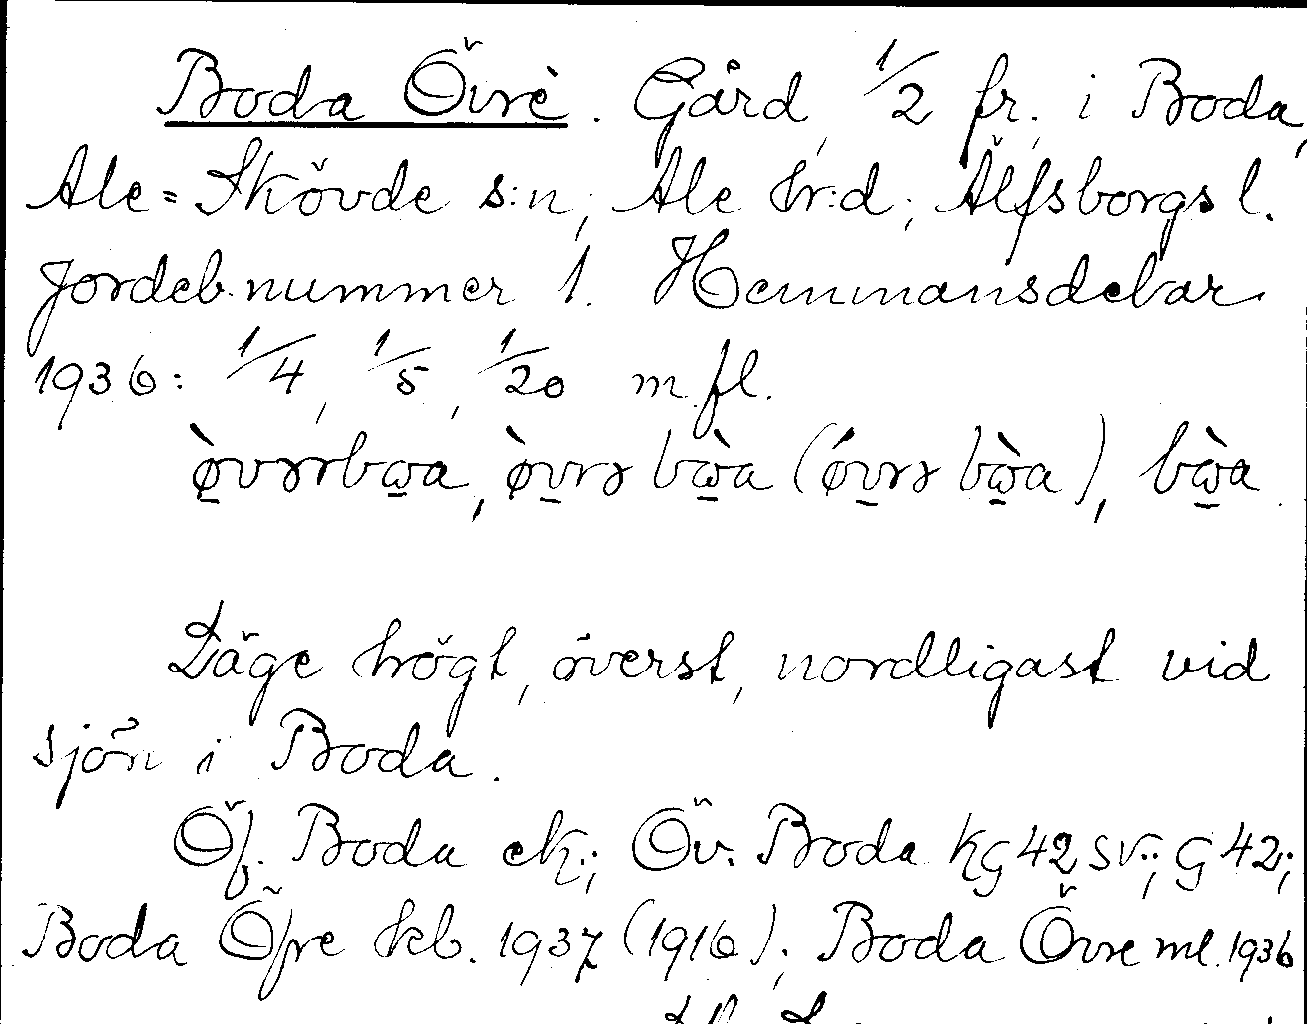 Boda Övrè. Gård, 1/2 fr., i Boda,
Ale-Skövde s:n, Ale hr:d, Älfsborgs l.
Jordeb.nummer 1. Hemmansdelar
1936: 1/4, 1/5, 1/20 m.fl.
bɷ̀a.
Läge högt, överst, nordligast vid
sjön i Boda.
Öf. Boda ek.; Öv. Boda KG 42 SV.; G 42;
Boda Öfre kb. 1937 (1916); Boda Övre ml. 1936